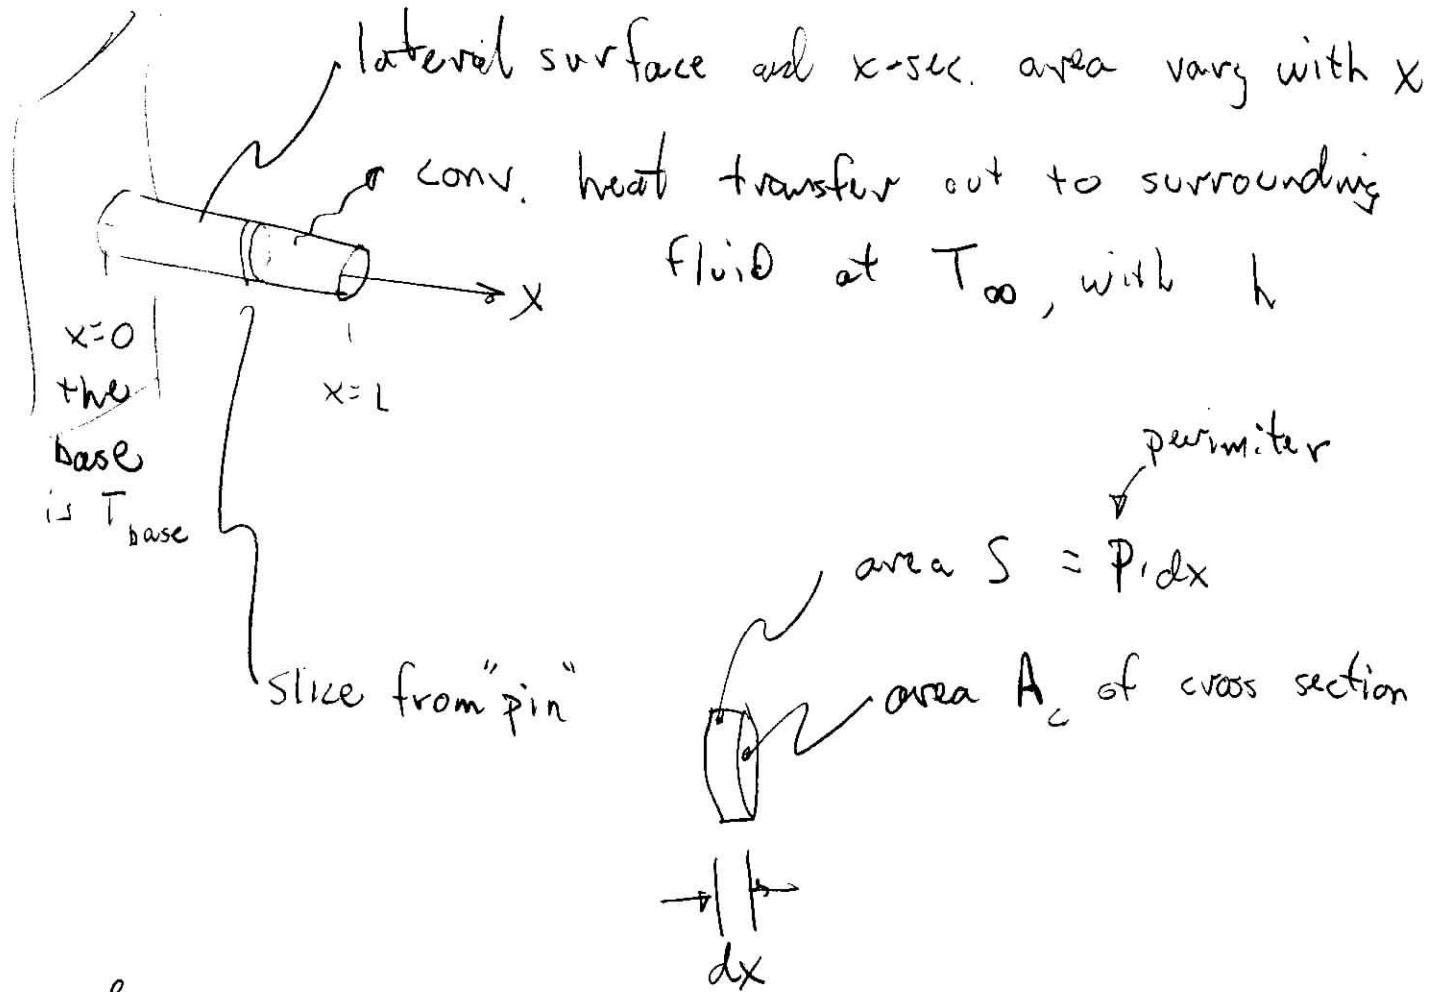 lateral surface and x-sec. area vary with x
conv. heat transfer out to surrounding
fluid at T∞, with h
x
x=0
the
base
is T base
x=L
perimiter
area S = P·dx
area Ac of cross section
slice from "pin"
dx